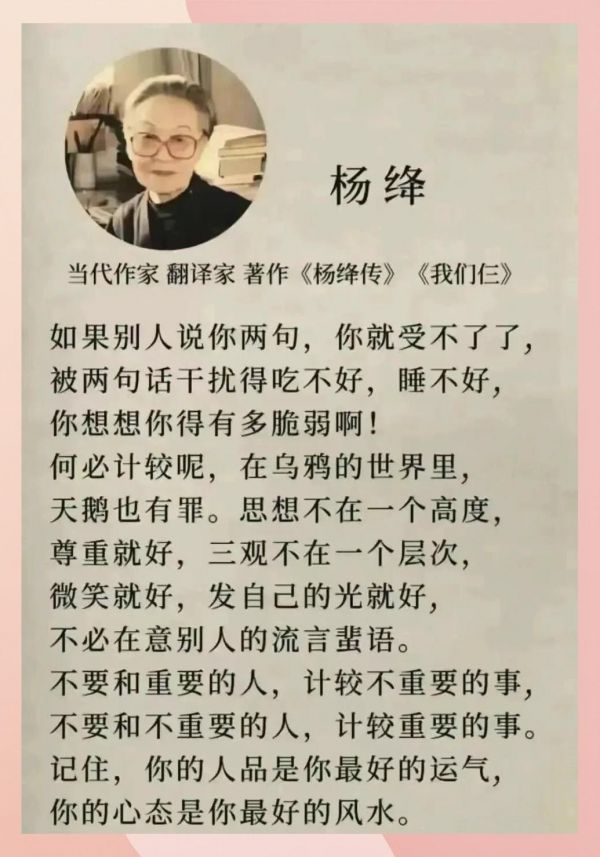 杨绛
当代作家 翻译家 著作《杨绛传》《我们仨》
如果别人说你两句，你就受不了了，
被两句话干扰得吃不好，睡不好，
你想想你得有多脆弱啊！
何必计较呢，在乌鸦的世界里，
天鹅也有罪。思想不在一个高度，
尊重就好，三观不在一个层次，
微笑就好，发自己的光就好，
不必在意别人的流言蜚语。
不要和重要的人，计较不重要的事，
不要和不重要的人，计较重要的事。
记住，你的人品是你最好的运气，
你的心态是你最好的风水。